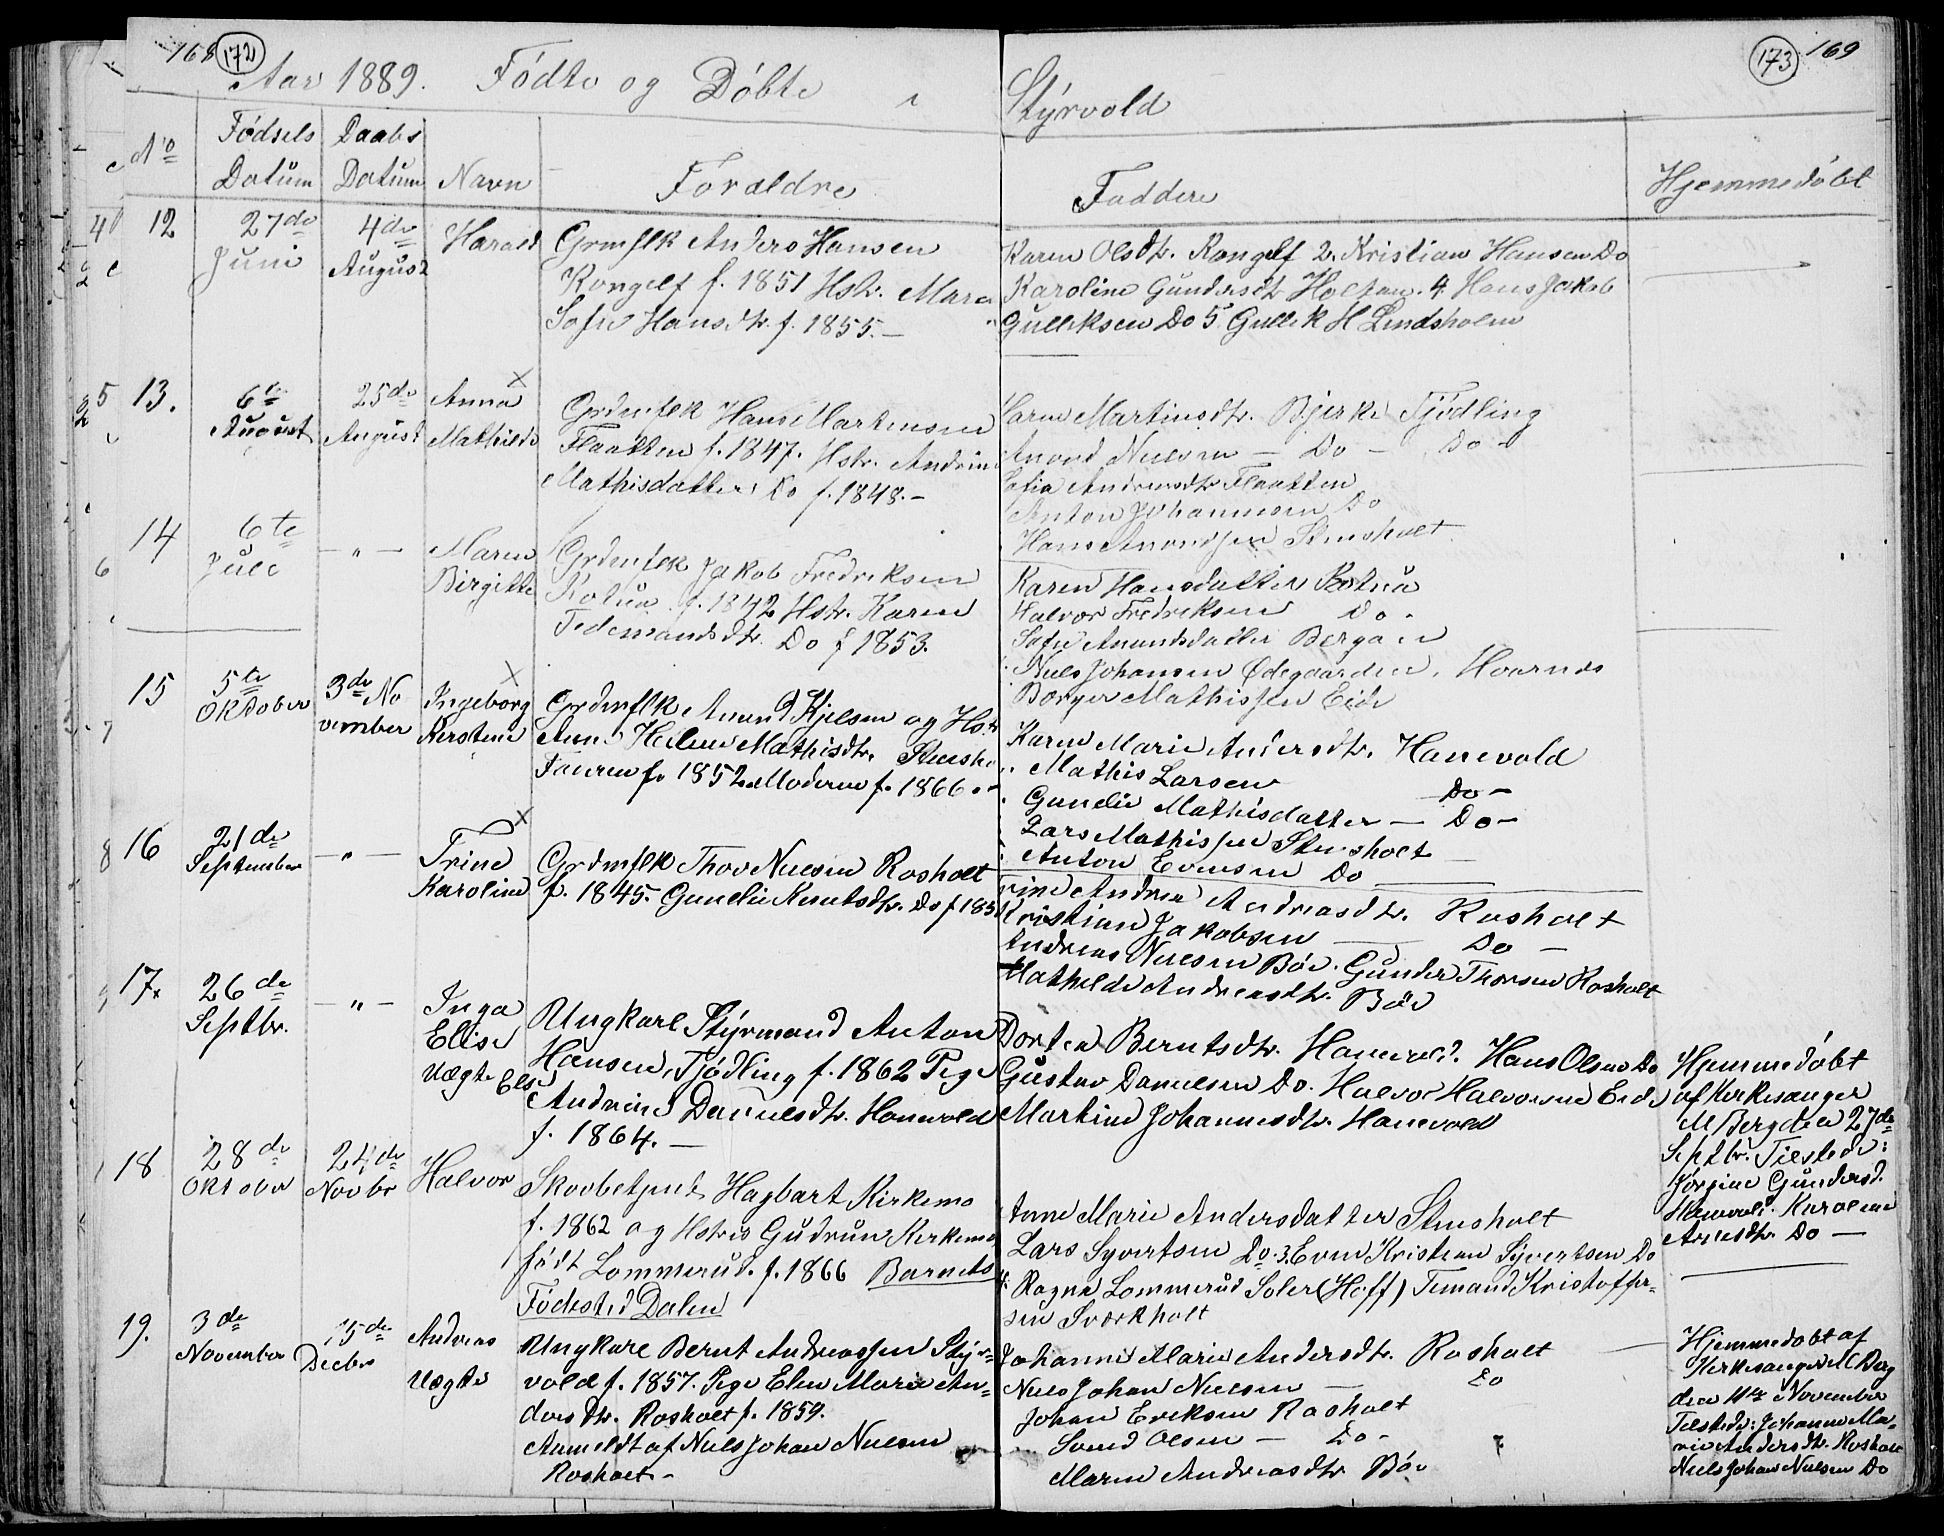 168 172
Aar 1889. Födte og Döbte i Styrvold
173 169
No
Födsels Datum
Daabs Datum
Navn
Forældre
Faddere
Hjemmedöbt
12
27de Juni
4de August
Harald
Grmflk Anders Hansen
Rongelf f. 1851 Hstr. Maren
Sofie Hansdtr. f. 1855.—
Karen Olsdtr. Rongelf 2. Kristian Hansen Do
Karoline Gundersdtr Holtan. 4. Hans Jakob
Gulliksen Do 5. Gullik H Lindsholm
13.
6te August
25de August
Anna Mathilde
Grdmflk Hans Martinsen
Flaatten f. 1847. Hstr. Andrine
Mathisdatter Do f. 1848.—
Maren Martinsdtr. Bjerke Tjödling
Anond Nielsen — Do — Do —
Sofia Andreasdtr Flaatten
Anton Johannesen Do
Hans Anondsen Stensholt
14
6te Juli
— " —
Maren Birgitte
Grdmflk Jakob Fredriksen
f. 1842 Hstr. Karen
Tidemandsdtr. Do f 1853.
Karen Hansdatter
Halvor Fredriksen Do.
Sofie Amundsdatter Bergan
Niels Johansen Ödegaarden, Hvarnes
Borger Mathissen Eide
15
5te Oktober
3de November
Ingeborg Kerstine
Grdmflk Anund Kjelsen og Hstr
Anne Helene Mathisdtr. Stensho
Faderen f. 1852. Moderen f. 1866.—
Karen Marie Andersdtr. Hanevold
Mathis Larsen Do —
Gunelie Mathisdatter — Do —
Lars Mathissen Stensholt
Anton Evensen Do
16
21de September
— " —
Trine Karoline
Grdmflk Thov Nielsen Rosholt
f. 1845. Gunelie Knutsdtr. Do f 185
Trine Andrea Andreasdtr. Rosholt
Kristian Jakobsen — Do —
Andreas Nielsen Böe. Gunder Thovsen Rosholt
Mathilde Andreasdtr. Böe
17.
26de Septbr.
— " —
Inga Elise
Uægte Else
Ungkarl Styrmand Anton
Hansen, Tjödling f. 1862 Pige
Andrine Danielsdtr. Hanevold
f. 1864.—
Dortea Berntsdtr. Hanevold. Hans Olsen Do
Gustav Danielsen Do. Halvor Halvorsen Eide
Martine Johannesdtr. Hanevold
Hjemmedöbt
af Kirkesanger
M Berg den 27de
Septbr. Tilstede:
Jörgine Gundersd.
Hanevold. Karoline
Arnesdtr Do —
18
28de Oktober
24de Novbr
Halvor
Skovbetjent Hagbart Kirkemo
f. 1862 og Hstris Gudrun Kirkemo
födt Lommerud. f. 1866 Barnets
Födested Dalen
Anne Marie Andersdatter Stensholt
Lars Syvertsen Do. 3. Even Kristian Syvertsen Do
4. Ragna Lommerud Soler (Hoff) Temand Kristoffer-
sen Sværkholt
19.
3de November
15de Decbr
Andreas
Uægte
Ungkarl Bernt Andreassen Styr-
vold f. 1857. Pige Elen Marie An-
dersdtr. Rosholt f. 1859.
Anmeldt af Niels Johan Nielsen
Rosholt.—
Johanne Marie Andersdtr. Rosholt
Niels Johan Nielsen — Do
Johan Eriksen Rosholt
Svend Olsen — Do —
Maren Andreasdtr Böe
Hjemmedöbt af
Kirkesanger M Berg
den 11te November
Tilstede: Johanne Ma-
rie Andersdtr. Rosholt
Niels Johan Nielsen Do